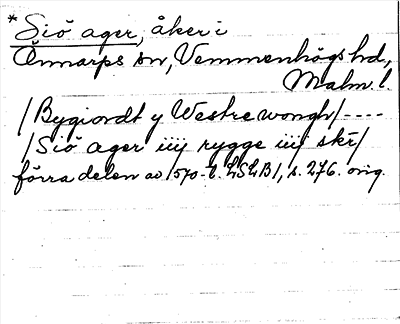 *Siö ager, åker i
Önnarps sn, Vemmenhögs hd,
Malm. l.
/Bygiordt y Westre wongh/----
/Siö ager iiij rygge iiij skr/
förra delen av 1570-t. LSLB1, s. 276. orig.